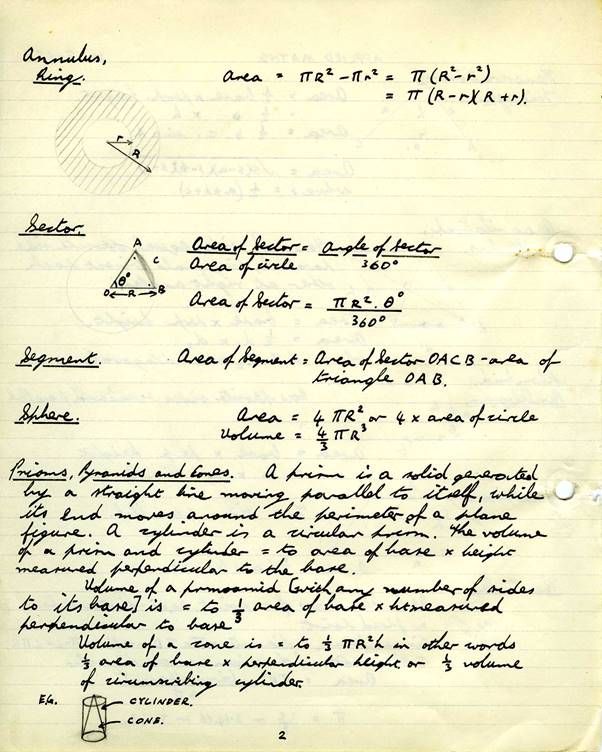 Annulus,
Ring.
Area = πR² - πr² = π(R²-r²)
= π(R-r)(R+r).
r
R
Sector.
A
C
θ°
O R B
Area of Sector = Angle of Sector
Area of circle 360°
Area of Sector = πR².θ°
360°
Segment. Area of Segment = Area of Sector OACB - area of
triangle OAB.
Sphere. Area = 4πR² or 4 x area of circle
Volume = 4/3 πR³
Prisms, Pyramids and Cones. A prism is a solid generated
by a straight line moving parallel to itself, while
its end moves around the perimeter of a plane
figure. A cylinder is a circular prism. The volume
of a prism and cylinder = to area of base x height
measured perpendicular to the base.
Volume of a [with any number of sides
to its base] is = to 1/3 area of base x ht measured
perpendicular to base
Volume of a cone is = to 1/3 πR²h in other words
1/3 area of base x perpendicular height or 1/3 volume
of circumscribing cylinder.
E.G.
CYLINDER.
CONE.
2